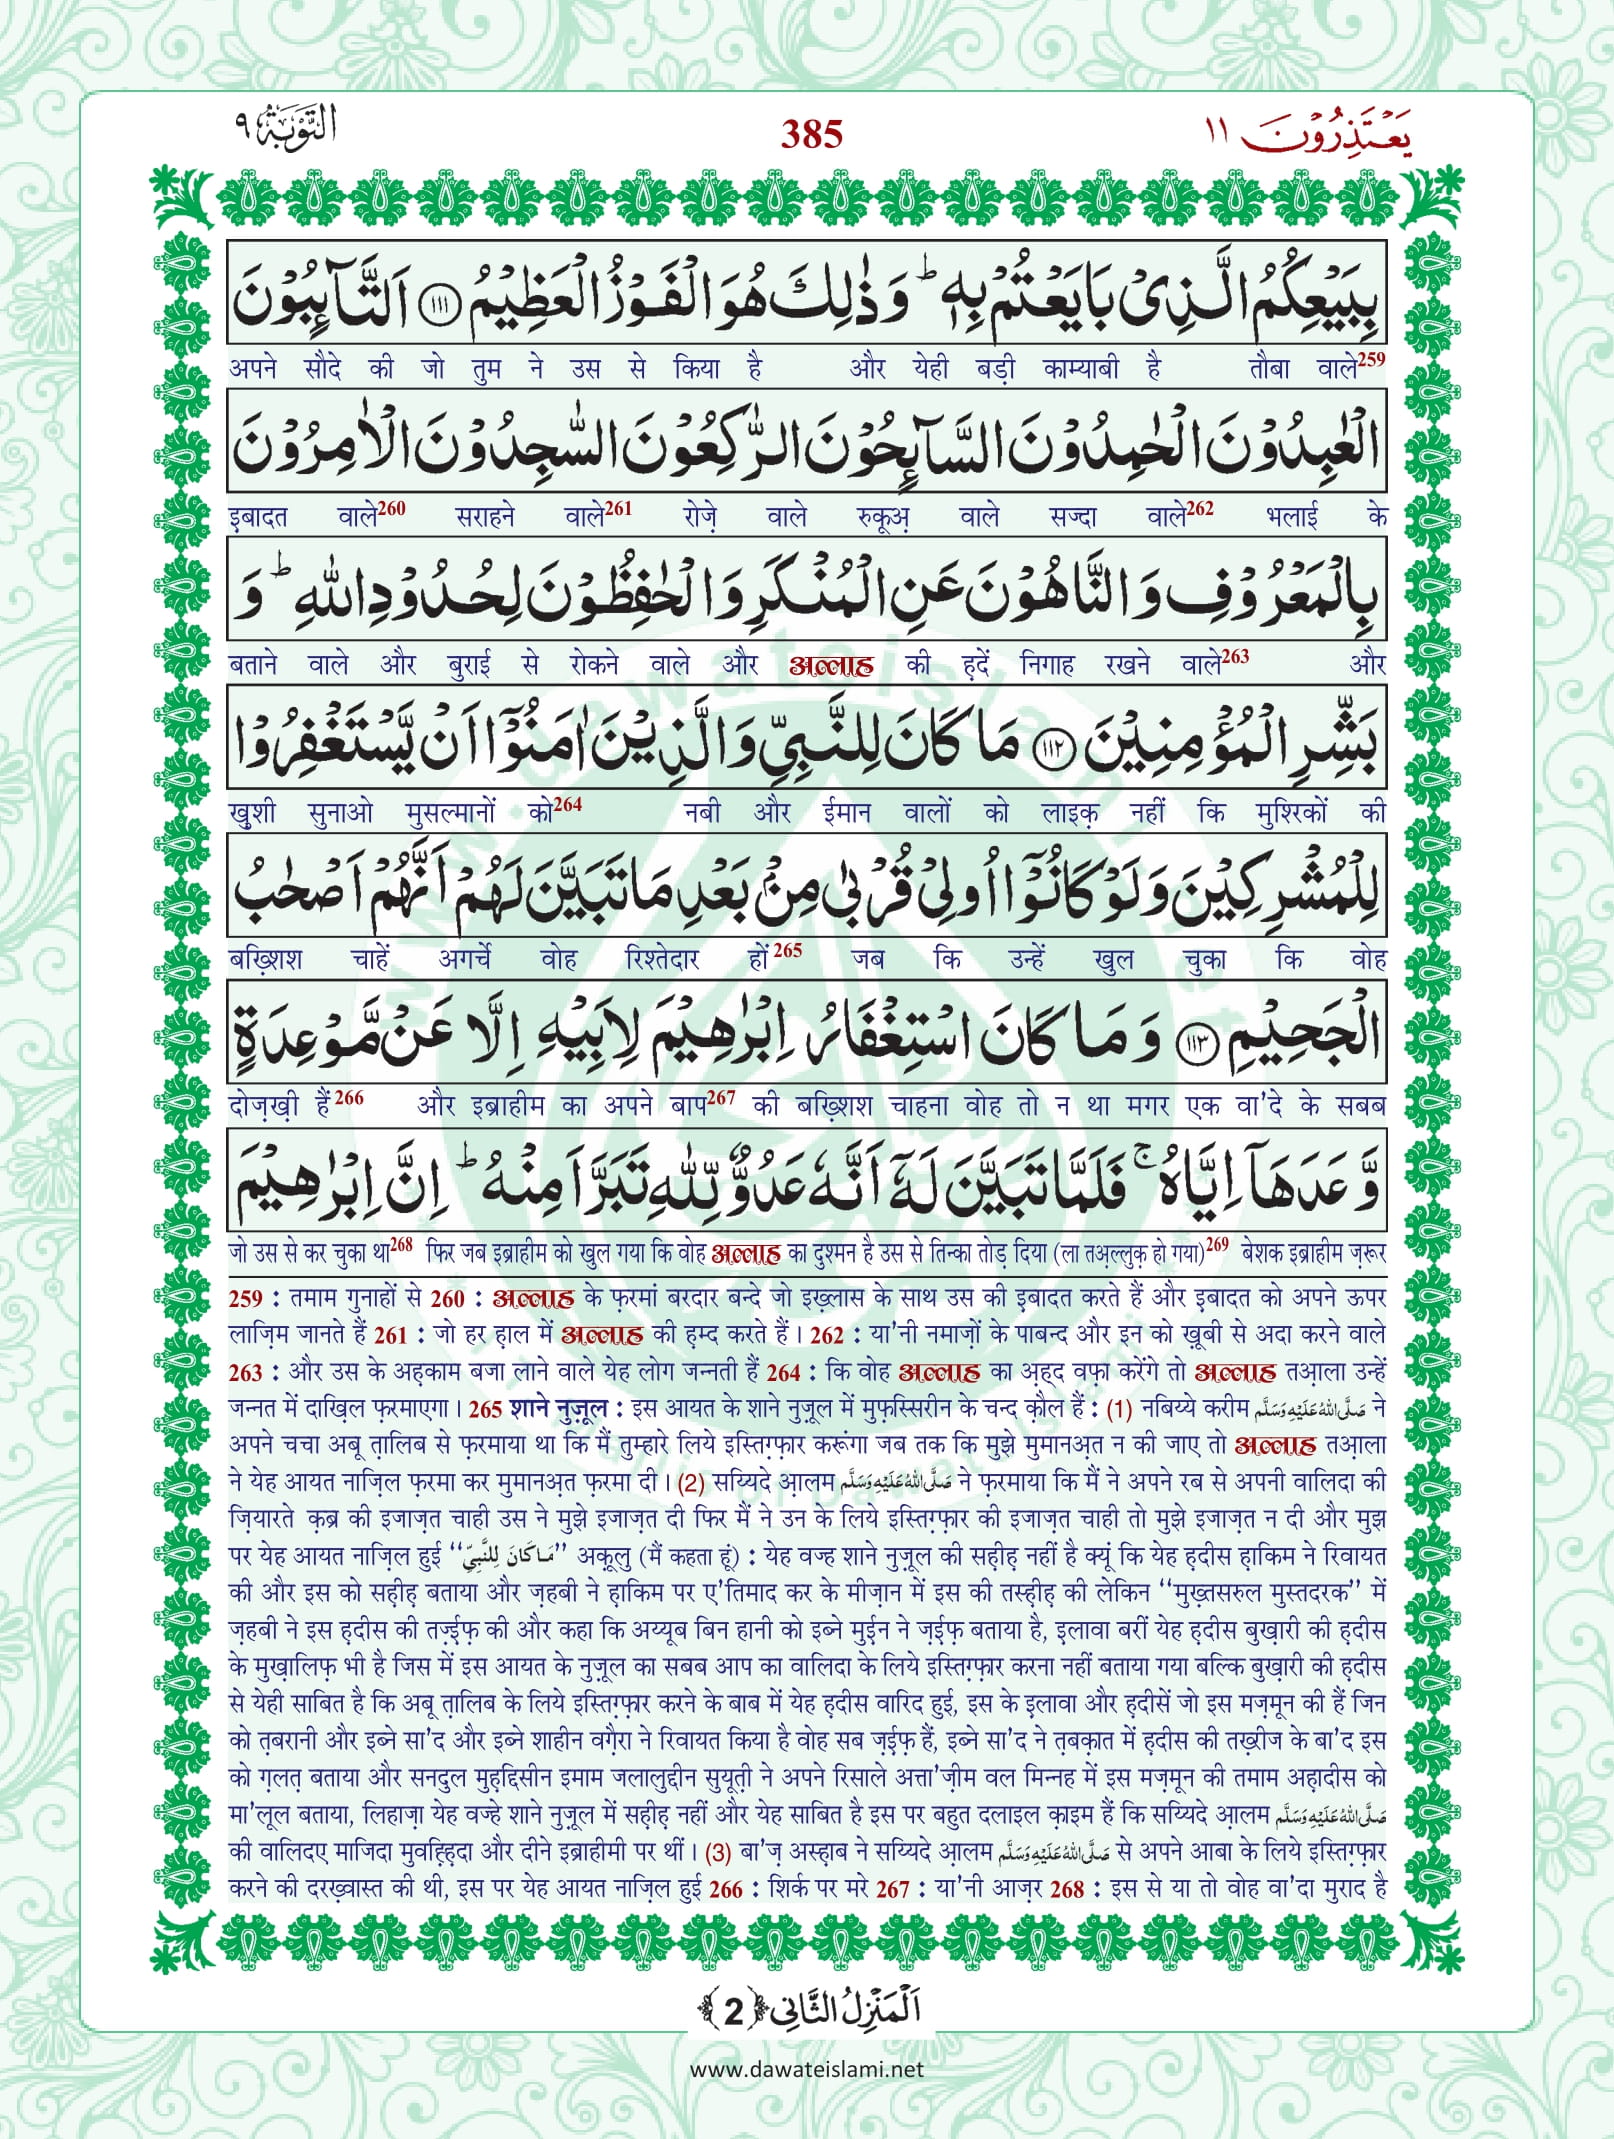 التَّوْبَة ٩
385
یَعْتَذِرُوْنَ ١١
بِبَیْعِكُمُ الَّذِیْ بَایَعْتُمْ بِهٖ ؕ وَ ذٰلِكَ هُوَ الْفَوْزُ الْعَظِیْمُ ﴿۱۱۱﴾ اَلتَّآىِٕبُوْنَ
अपने सौदे की जो तुम ने उस से किया है और येही बड़ी काम्याबी है तौबा वाले259
الْعٰبِدُوْنَ الْحٰمِدُوْنَ السَّآىِٕحُوْنَ الرّٰكِعُوْنَ السّٰجِدُوْنَ الْاٰمِرُوْنَ
इ़बादत वाले260 सराहने वाले261 रोज़े वाले रुकूअ़ वाले सज्दा वाले262 भलाई के
بِالْمَعْرُوْفِ وَ النَّاهُوْنَ عَنِ الْمُنْكَرِ وَ الْحٰفِظُوْنَ لِحُدُوْدِ اللّٰهِ ؕ وَ
बताने वाले और बुराई से रोकने वाले और अल्लाह की ह़दें निगाह रखने वाले263 और
بَشِّرِ الْمُؤْمِنِیْنَ ﴿۱۱۲﴾ مَا كَانَ لِلنَّبِیِّ وَ الَّذِیْنَ اٰمَنُوْۤا اَنْ یَّسْتَغْفِرُوْا
खुशी सुनाओ मुसल्मानों को264 नबी और ईमान वालों को लाइक़ नहीं कि मुश्रिकों की
لِلْمُشْرِكِیْنَ وَ لَوْ كَانُوْۤا اُولِیْ قُرْبٰى مِنْۢ بَعْدِ مَا تَبَیَّنَ لَهُمْ اَنَّهُمْ اَصْحٰبُ
बख़्शिश चाहें अगर्चे वोह रिश्तेदार हों265 जब कि उन्हें खुल चुका कि वोह
الْجَحِیْمِ ﴿۱۱۳﴾ وَ مَا كَانَ اسْتِغْفَارُ اِبْرٰهِیْمَ لِاَبِیْهِ اِلَّا عَنْ مَّوْعِدَةٍ
दोज़ख़ी हैं266 और इब्राहीम का अपने बाप267 की बख़्शिश चाहना वोह तो न था मगर एक वा'दे के सबब
وَّعَدَهَاۤ اِیَّاهُ ۚ فَلَمَّا تَبَیَّنَ لَهٗۤ اَنَّهٗ عَدُوٌّ لِّلّٰهِ تَبَرَّاَ مِنْهُ ؕ اِنَّ اِبْرٰهِیْمَ
जो उस से कर चुका था268 फिर जब इब्राहीम को खुल गया कि वोह अल्लाह का दुश्मन है उस से तिन्का तोड़ दिया (ला तअ़ल्लुक़ हो गया)269 बेशक इब्राहीम ज़रूर
259 : तमाम गुनाहों से 260 : अल्लाह के फ़रमां बरदार बन्दे जो इख़्लास के साथ उस की इ़बादत करते हैं और इ़बादत को अपने ऊपर
लाज़िम जानते हैं 261 : जो हर ह़ाल में अल्लाह की ह़म्द करते हैं। 262 : या'नी नमाज़ों के पाबन्द और इन को ख़ूबी से अदा करने वाले
263 : और उस के अह़काम बजा लाने वाले येह लोग जन्नती हैं 264 : कि वोह अल्लाह का अ़ह्द वफ़ा करेंगे तो अल्लाह तआ़ला उन्हें
जन्नत में दाख़िल फ़रमाएगा। 265 शाने नुज़ूल : इस आयत के शाने नुज़ूल में मुफ़स्सिरीन के चन्द क़ौल हैं : (1) नबिय्ये करीम صَلَّى اللهُ عَلَيْهِ وَسَلَّم ने
अपने चचा अबू त़ालिब से फ़रमाया था कि मैं तुम्हारे लिये इस्तिग़्फ़ार करूंगा जब तक कि मुझे मुमानअ़त न की जाए तो अल्लाह तआ़ला
ने येह आयत नाज़िल फ़रमा कर मुमानअ़त फ़रमा दी। (2) सय्यिदे आ़लम صَلَّى اللهُ عَلَيْهِ وَسَلَّم ने फ़रमाया कि मैं ने अपने रब से अपनी वालिदा की
ज़ियारते क़ब्र की इजाज़त चाही उस ने मुझे इजाज़त दी फिर मैं ने उन के लिये इस्तिग़्फ़ार की इजाज़त चाही तो मुझे इजाज़त न दी और मुझ
पर येह आयत नाज़िल हुई ‘‘مَا كَانَ لِلنَّبِيِّ’’ अक़ूलु (मैं कहता हूं) : येह वज्ह शाने नुज़ूल की सह़ीह़ नहीं है क्यूं कि येह ह़दीस ह़ाकिम ने रिवायत
की और इस को सह़ीह़ बताया और ज़हबी ने ह़ाकिम पर ए'तिमाद कर के मीज़ान में इस की तस्ह़ीह़ की लेकिन ‘‘मुख़्तसरुल मुस्तदरक’’ में
ज़हबी ने इस ह़दीस की तज़्ईफ़ की और कहा कि अय्यूब बिन हानी को इब्ने मुई़न ने ज़ई़फ़ बताया है, इलावा बरीं येह ह़दीस बुख़ारी की ह़दीस
के मुख़ालिफ़ भी है जिस में इस आयत के नुज़ूल का सबब आप का वालिदा के लिये इस्तिग़्फ़ार करना नहीं बताया गया बल्कि बुख़ारी की ह़दीस
से येही साबित है कि अबू त़ालिब के लिये इस्तिग़्फ़ार करने के बाब में येह ह़दीस वारिद हुई, इस के इ़लावा और ह़दीसें जो इस मज़्मून की हैं जिन
को त़बरानी और इब्ने सा'द और इब्ने शाहीन वग़ैरा ने रिवायत किया है वोह सब ज़ई़फ़ हैं, इब्ने सा'द ने त़बक़ात में ह़दीस की तख़्रीज के बा'द इस
को ग़लत़ बताया और सनदुल मुह़द्दिसीन इमाम जलालुद्दीन सुयूत़ी ने अपने रिसाले अत्ता'ज़ीम वल मिन्नह में इस मज़्मून की तमाम अह़ादीस को
मा'लूल बताया, लिहाज़ा येह वज्हे शाने नुज़ूल में सह़ीह़ नहीं और येह साबित है इस पर बहुत दलाइल क़ाइम हैं कि सय्यिदे आ़लम صَلَّى اللهُ عَلَيْهِ وَسَلَّم
की वालिदए माजिदा मुवह़्ह़िदा और दीने इब्राहीमी पर थीं। (3) बा'ज़ अस्ह़ाब ने सय्यिदे आ़लम صَلَّى اللهُ عَلَيْهِ وَسَلَّم से अपने आबा के लिये इस्तिग़्फ़ार
करने की दरख़्वास्त की थी, इस पर येह आयत नाज़िल हुई 266 : शिर्क पर मरे 267 : या'नी आज़र 268 : इस से या तो वोह वा'दा मुराद है
اَلْمَنْزِلُ الثَّانِی ﴿2﴾
www.dawateislami.net